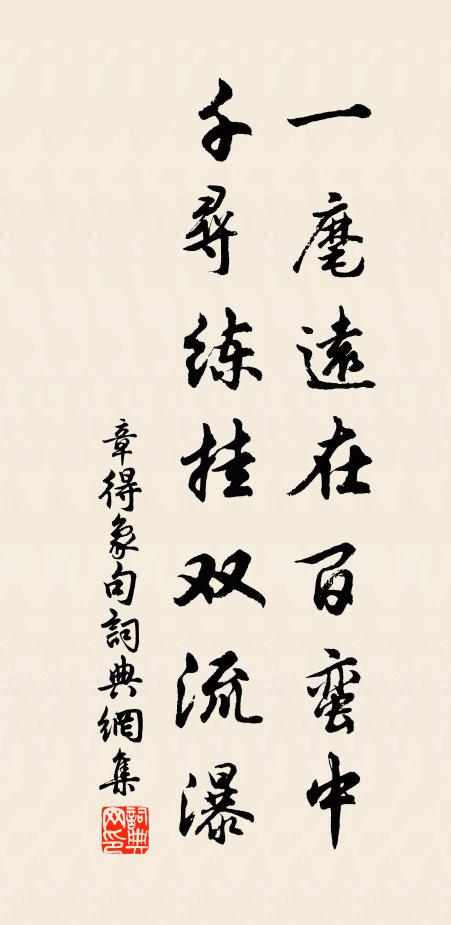 一麾遠在百蛮中
千尋練挂双流瀑
章得象句詞典網集
詞典网印